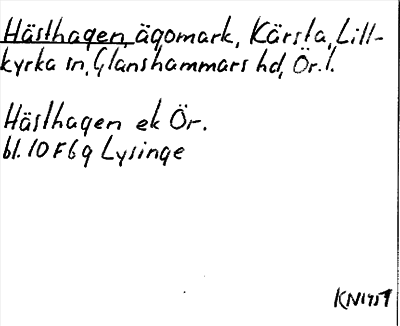 Hästhagen, ägomark, Kärsta, Lill-
kyrka sn, Glanshammars hd, Ör. l.
Hästhagen ek Ör.
bl. 10 F 6 g Lysinge